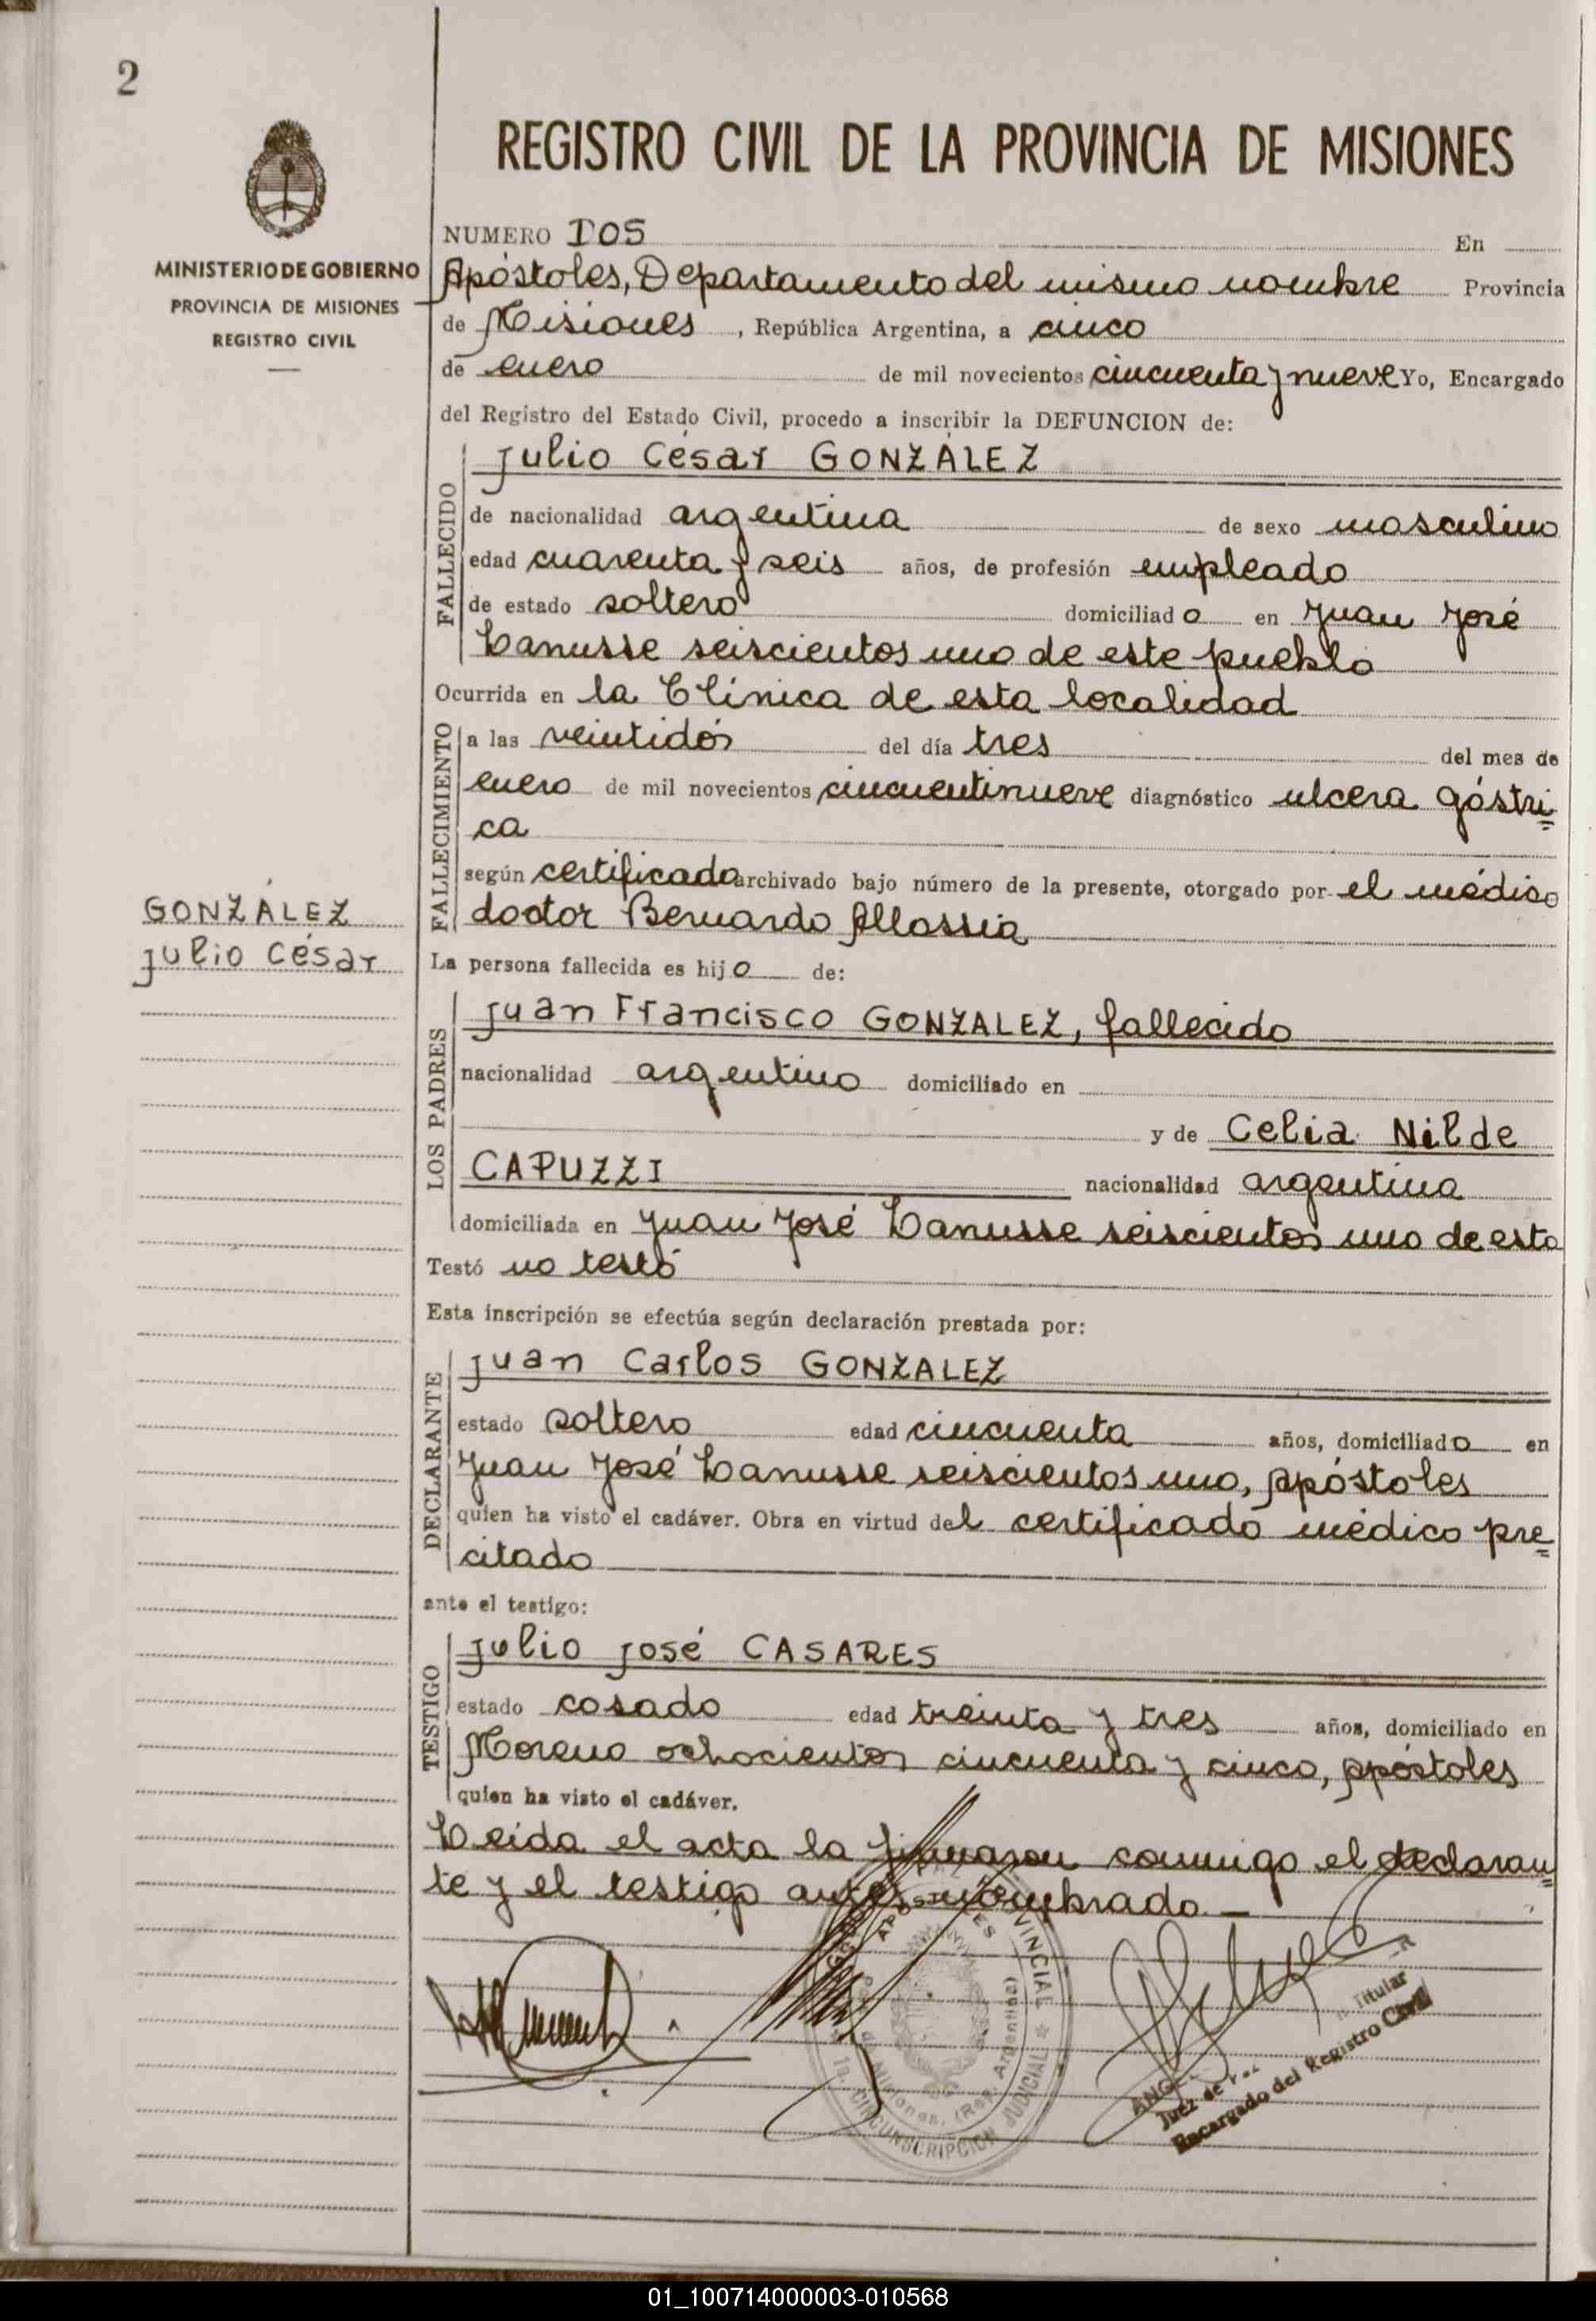 2
MINISTERIO DE GOBIERNO
PROVINCIA DE MISIONES
REGISTRO CIVIL
GONZÁLEZ
Julio César
REGISTRO CIVIL DE LA PROVINCIA DE MISIONES
NUMERO DOS En
Apóstoles, Departamento del mismo nombre Provincia
de Misiones, República Argentina, a cinco
de enero de mil novecientos cincuenta y nueve Yo, Encargado
del Registro del Estado Civil, procedo a inscribir la DEFUNCION de:
FALLECIDO
Julio César GONZÁLEZ
de nacionalidad argentina de sexo masculino
edad cuarenta y seis años, de profesión empleado
de estado soltero domiciliado en Juan José
Lanusse seiscientos uno de este pueblo
Ocurrida en la Clínica de esta localidad
FALLECIMIENTO
a las veintidós del día tres del mes de
enero de mil novecientos cincuentinueve diagnóstico ulcera gástri=
ca
según certificado archivado bajo número de la presente, otorgado por el médico
doctor Bernardo Allassia
La persona fallecida es hijo de:
LOS PADRES
Juan Francisco GONZALEZ, fallecido
nacionalidad argentino domiciliado en
y de Celia Nilde
CAPUZZI nacionalidad argentina
domiciliada en Juan José Lanusse seiscientos uno de esta
Testó no testó
Esta inscripción se efectúa según declaración prestada por:
DECLARANTE
Juan Carlos GONZALEZ
estado soltero edad cincuenta años, domiciliado en
Juan José Lanusse seiscientos uno, Apóstoles
quien ha visto el cadáver. Obra en virtud del certificado médico pre=
citado
ante el testigo:
TESTIGO
Julio José CASARES
estado casado edad treinta y tres años, domiciliado en
Moreno ochocientos cincuenta y cinco, Apóstoles
quien ha visto el cadáver.
Leída el acta la firmaron conmigo el declaran=
te y el testigo antes nombrado.—
1a. CIRCUNSCRIPCION JUDICIAL
de Misiones. (Rep. Argentina)
Titular
Juez de
Encargado del Registro Civil
01_100714000003-010568